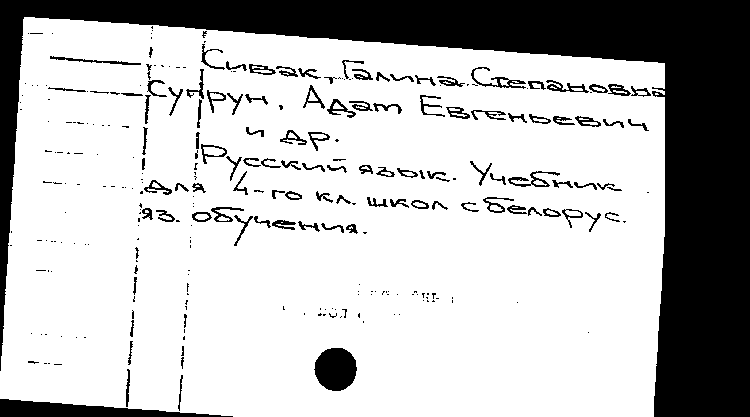 Сивак, Галина Степановна
Супрун, Адам Евгеньевич
и др.
Русский язык. Учебник
для 4-го кл. школ с белорус.
яз. обучения.